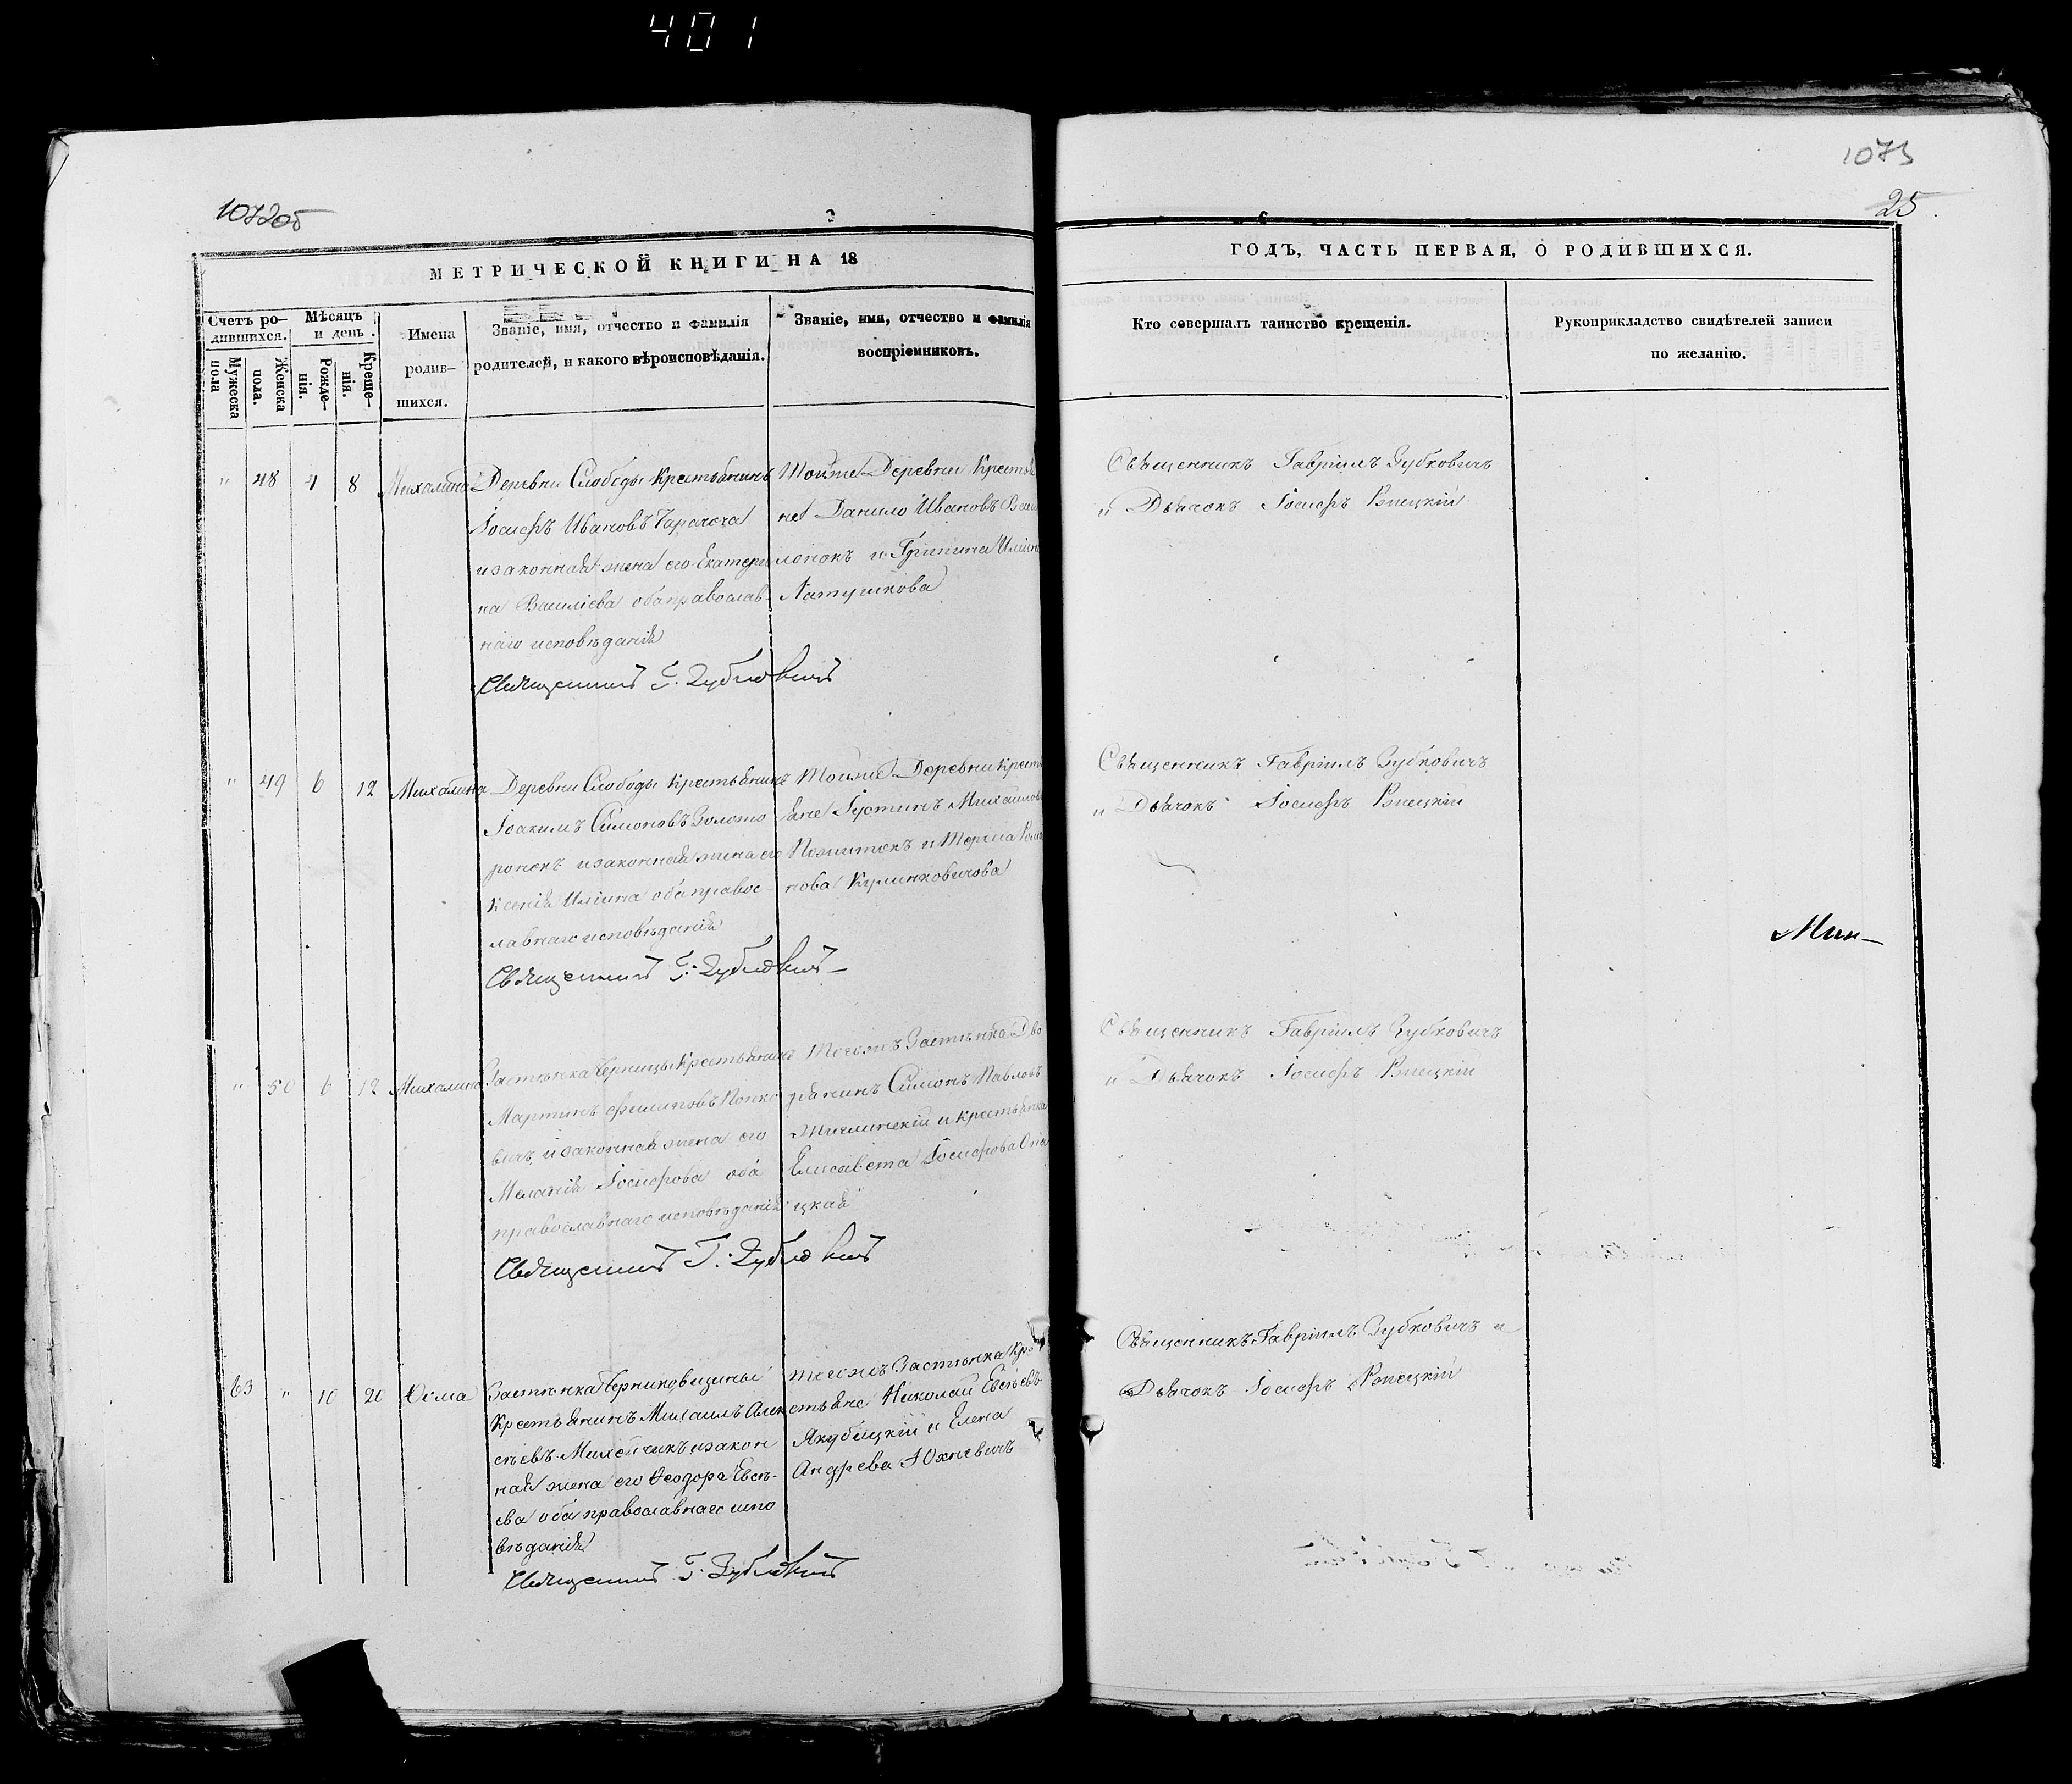 401
1072об
1073
25.
МЕТРИЧЕСКОЙ КНИГИ НА 18
ГОДЪ, ЧАСТЬ ПЕРВАЯ, О РОДИВШИХСЯ.
Счетъ ро-
дившихся.
Мужеска
пола
Женска
пола.
Мѣсяцъ
и день.
Рожде-
нія.
Креще-
нія.
Имена
родив-
шихся.
Званіе, имя, отчество и фамилія
родителей, и какого вѣроисповѣданія.
Званіе, имя, отчество и фамилія
воспріемниковъ.
Кто совершалъ таинство крещенія.
Рукоприкладство свидѣтелей записи
по желанію.
" 48 4 8 Михалина
Деревни Слободы Крестьянинъ
Іосифъ Ивановъ
и законная жена его Екатери
на Василіева оба православ-
наго исповѣданія
Священникъ Г. Зубковичъ
Тойже Деревни Крестья
не Данило Ивановъ
и Гриппина Иліина
Латушкова
Священникъ Гавріилъ Зубковичъ
" Дьячокъ Іосифъ Ржецкій
" 49 6 12 Михалина
Деревни Слободы Крестьянинъ
Іоакимъ Симоновъ Золото
ронокъ и законная жена его
Ксенія Иліина оба правос
лавнаго исповѣданія
Священникъ Г. Зубковичъ
Тойже Деревни Кресть
яне Іустинъ Михаиловъ
и Тереса
нова Кулинковичова
Священникъ Гавріилъ Зубковичъ
" Дьячокъ Іосифъ Ржецкій
Мин-
" 50 6 12 Михалина
Застѣнка Черницы Крестьянинъ
Мартинъ Филиповъ Попко
вичъ и законная жена его
Меланія Іосифова оба
православнаго исповѣданія
Священникъ Г. Зубковичъ
Тогожъ Застѣнка Дво
рянинъ Симонъ Павловъ
Жиглинскій и крестьянка
Елисавета Іосифова
цкая
Священникъ Гавріилъ Зубковичъ
" Дьячокъ Іосифъ Ржецкій
63 " 10 20 Ѳома
Застѣнка Черниковщины
Крестьянинъ Михаилъ Алек
сѣевъ Михейчикъ и закон
ная жена его Ѳеодора Евсѣ-
ева оба православнаго испо
вѣданія
Священникъ Г. Зубковичъ
Тогожъ Застѣнка Кре
стьяне Николай Евсѣевъ
Якубицкій и Елена
Андреева Юхневичъ
Священникъ Гавріилъ Зубковичъ и
Дьячокъ Іосифъ Ржецкій